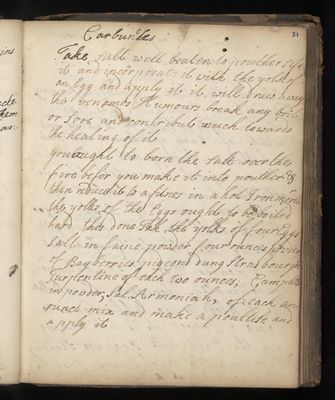 31
Carbuncles
Take salt well beaten to pouther sift
it and incorporate it with the yolk of
an Egg and apply it it will draw away
the venomes Humours break any boil
or Sore and contribute much towards
the healing of it
you ought to born the salt over the
fire befor you make it into pouther &
then reduce it to a finess in a hot Iron
the yolks of the Eggs ought to be boiled
hard this done Take the yolks of four Eggs
salt in faine powder four ounces
of Bayberries pigeons dung Strasbourgh
Turpentine of each two ounces,
in powder, Sal Armoniak, of each an
ounce mix and make a poultise and
apply it